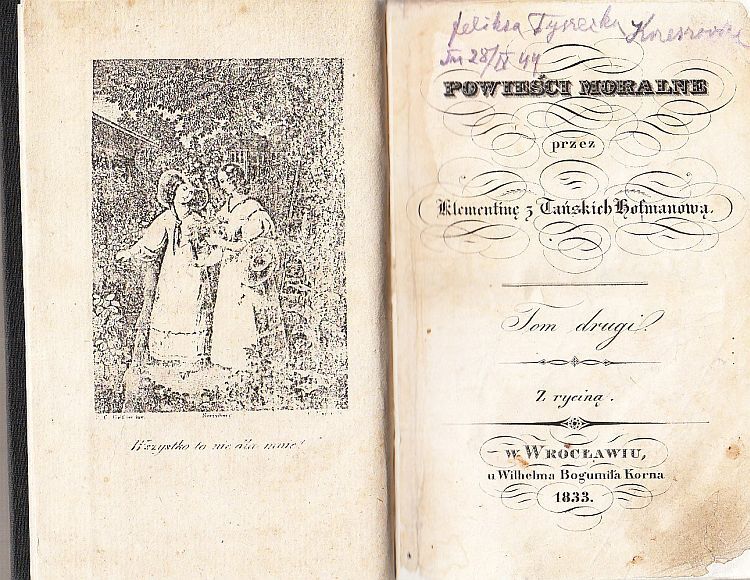 Wszystko to nie dla mnie!
28/IV 44
POWIEŚCI MORALNE
przez
Klementinę z Tańskich Hofmanową.
Tom drugi.
Z ryciną.
W WROCŁAWIU,
u Wilhelma Bogumiła Korna
1833.